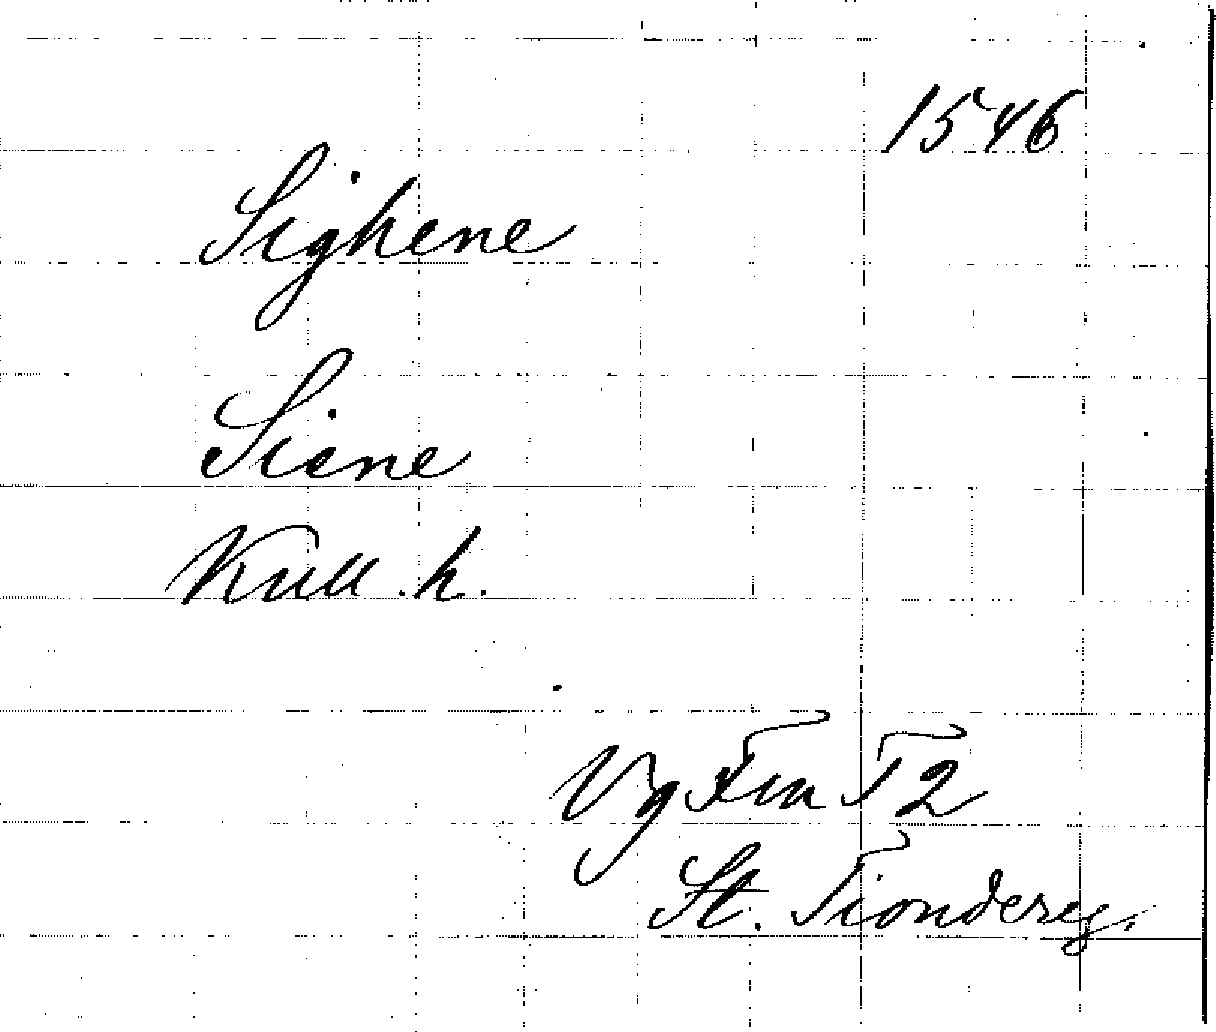 1546
Sighene
Siene
Kull. h.
Vg Fra T2
St. Tiondereg.